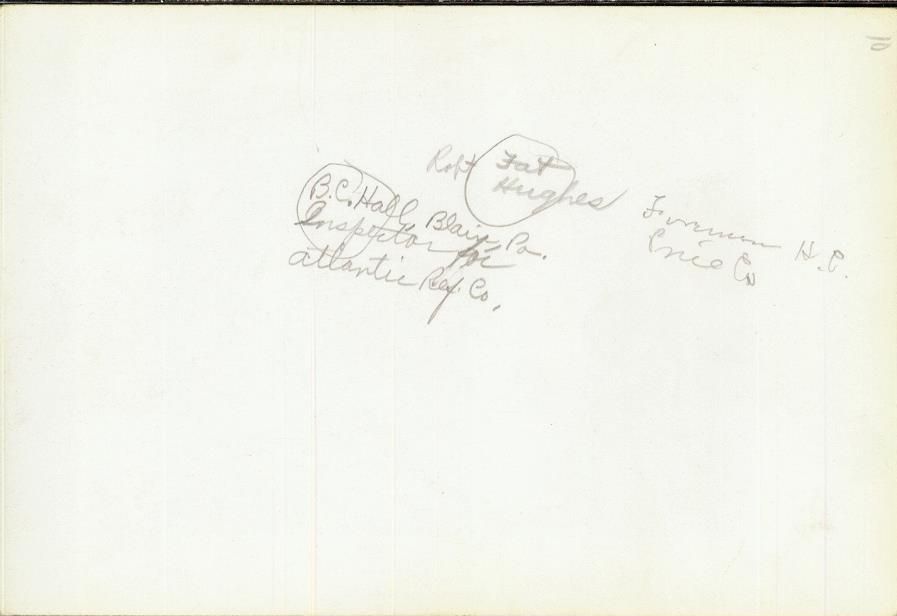 Robt Fat
Hughes
B.C. Hall, Blair, Pa.
Inspector for
Atlantic Ref. Co.
Foreman H.C.
Co